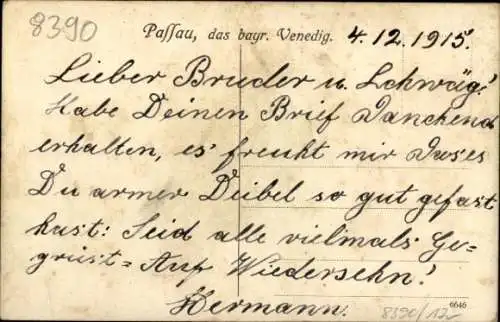 8390
Passau, das bayr. Venedig. 4.12.1915.
Lieber Bruder u. Schwäg.!
Habe Deinen Brief Danckend
erhalten, es freuht mir Dases
Du armer Deibel so gut gefast
hast: Seid alle vielmals Ge-
grüst = Auf Wiedersehn!
Hermann.
6646
8390/12